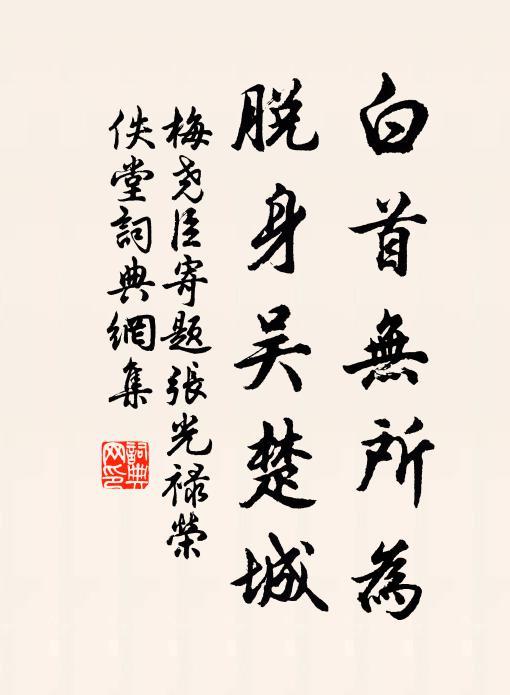 白首無所為
脱身吴楚城
梅尧臣寄题張光禄榮
佚堂詞典網集
詞典网印